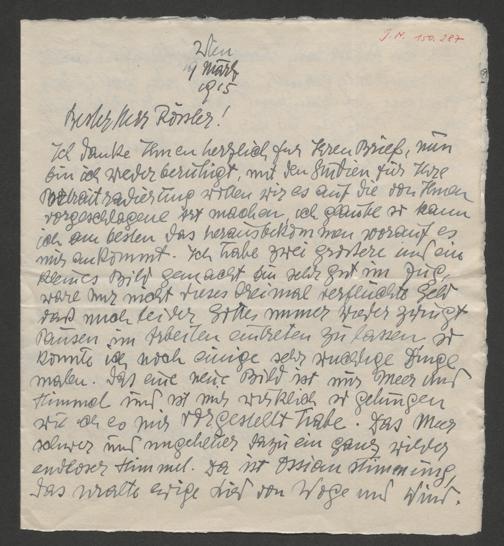 J.N. 150.287
Wien
19 März
1915
Bester Herr Rössler!
Ich danke Ihnen herzlich für Ihren Brief, nun
bin ich wieder beruhigt, mit den Studien für Ihre
Portraitradierung wollen wir es auf die von Ihnen
vorgeschlagene Art machen, ich glaube so kann
ich am besten das herausbekommen worauf es
mir ankommt. Ich habe zwei größere und ein
kleines Bild gemacht bin sehr gut im Zug,
wäre nur nicht dieses dreimal verfluchte Geld
daß mich leider Gottes immer wieder zwingt
Pausen im Arbeiten eintreten zu lassen, so
könnte ich noch einige sehr wuchtige Dinge
malen. Das eine neue Bild ist nur Meer und
Himmel und ist mir wirklich so gelungen
wie ich es mir vorgestellt habe. Das Meer
schwer und ungeheuer dazu ein ganz wilder
endloser Himmel. Da ist Ossianstimmung,
das uralte ewige Lied von Woge und Wind.